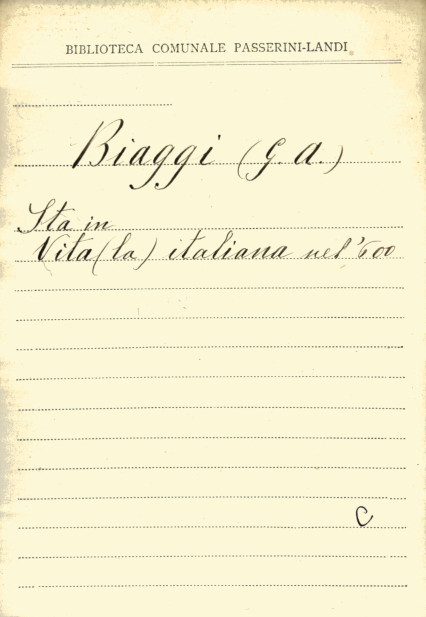 BIBLIOTECA COMUNALE PASSERINI-LANDI
Biaggi (G. A.)
Sta in
Vita (la) italiana nel '600
C